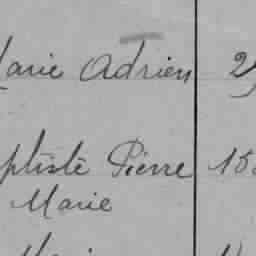 Marie Adrien 2
ptiste Pierre 15
Marie